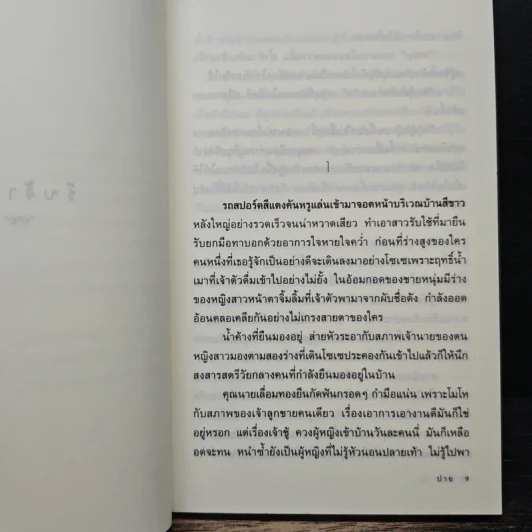 รับจ้า
1
รถสปอร์ตสีแดงคันหรูแล่นเข้ามาจอดหน้าบริเวณบ้านสีขาว
หลังใหญ่อย่างรวดเร็วจนน่าหวาดเสียว ทำเอาสาวรับใช้ที่มายืน
รับยกมือทาบอกด้วยอาการใจหายใจคว่ำ ก่อนที่ร่างสูงของใคร
คนหนึ่งที่เธอรู้จักเป็นอย่างดีจะเดินลงมาอย่างโซเซเพราะฤทธิ์น้ำ
เมาที่เจ้าตัวดื่มเข้าไปอย่างไม่ยั้ง ในอ้อมกอดของชายหนุ่มมีร่าง
ของหญิงสาวหน้าตาจิ้มลิ้มที่เจ้าตัวพามาจากผับชื่อดัง กำลังออด
อ้อนคลอเคลียกันอย่างไม่เกรงสายตาของใคร
น้ำค้างที่ยืนมองอยู่ ส่ายหัวระอากับสภาพเจ้านายของตน
หญิงสาวมองตามสองร่างที่เดินโซเซประคองกันเข้าไปแล้วก็ให้นึก
สงสารสตรีวัยกลางคนที่กำลังยืนมองอยู่ในบ้าน
คุณนายเลื่อมทองยืนกัดฟันกรอดๆ กำมือแน่น เพราะโมโห
กับสภาพของเจ้าลูกชายคนเดียว เรื่องเอาการเอางานดีมันก็ใช่
อยู่หรอก แต่เรื่องเจ้าชู้ ควงผู้หญิงเข้าบ้านวันละคนนี่ มันก็เหลือ
อดจะทน หนำซ้ำยังเป็นผู้หญิงที่ไม่รู้หัวนอนปลายเท้า ไม่รู้ไปพา
ปาย 9